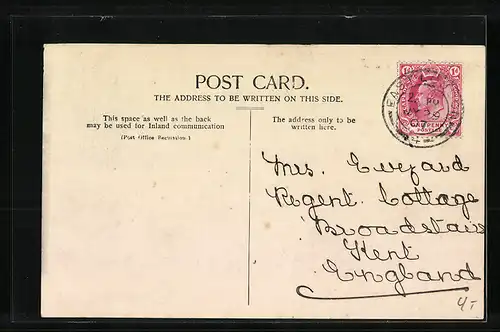 POST CARD.
THE ADDRESS TO BE WRITTEN ON THIS SIDE.
This space as well as the back
may be used for Inland communication
(Post Office Regulation.)
The address only to be
written here.
1d 1d
ONE PENNY
POSTAGE
Mrs. Everard
Regent Cottage
Broadstairs
Kent
England
4,-